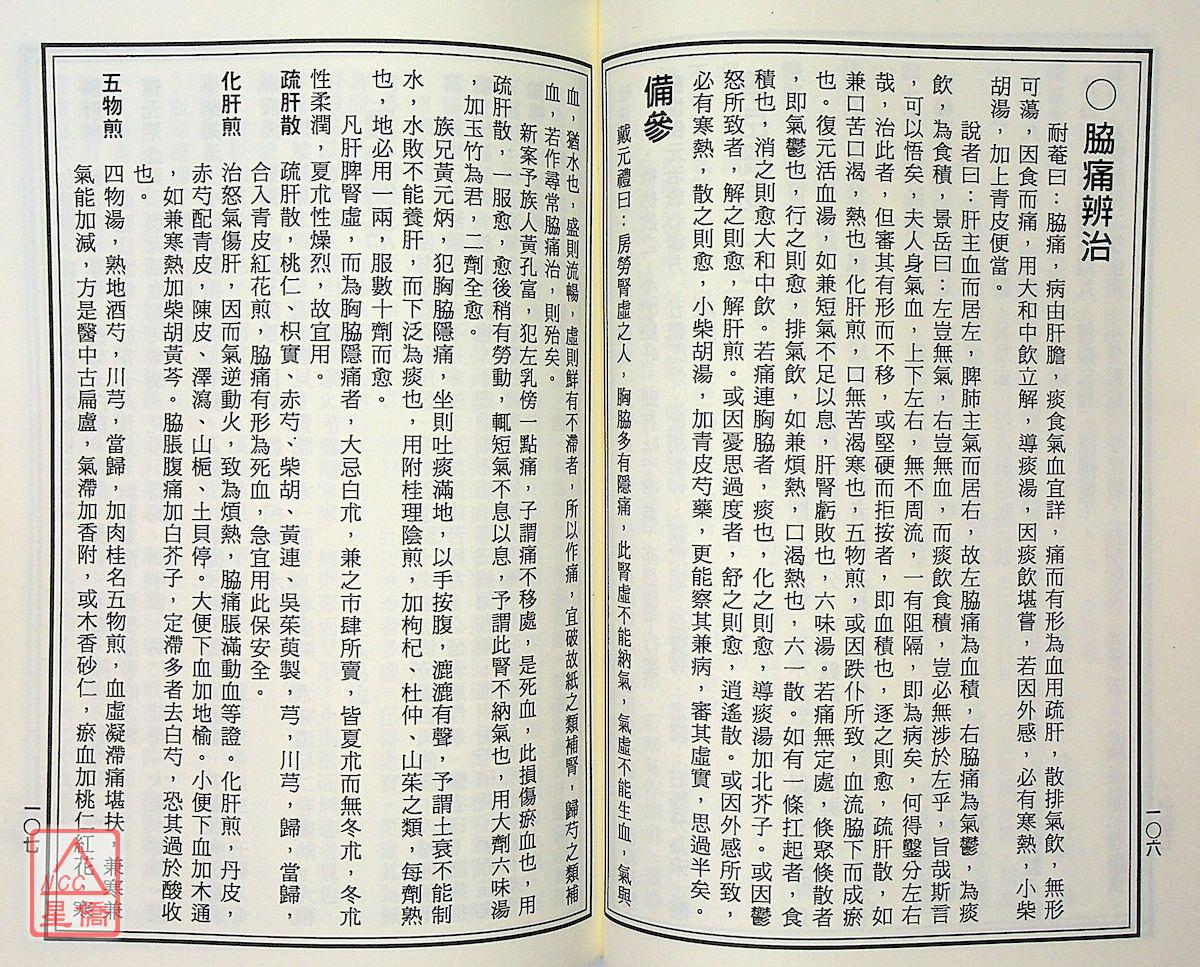 〇脇痛辨治
耐菴曰：脇痛，病由肝膽，痰食氣血宜詳，痛而有形為血用疏肝，散排氣飲，無形
可蕩，因食而痛，用大和中飲立解，導痰湯，因痰飲堪嘗，若因外感，必有寒熱，小柴
胡湯，加上青皮便當。
說者曰：肝主血而居左，脾肺主氣而居右，故左脇痛為血積，右脇痛為氣鬱，為痰
飲，為食積，景岳曰：左豈無氣，右豈無血，而痰飲食積，豈必無涉於左乎，旨哉斯言
，可以悟矣，夫人身氣血，上下左右，無不周流，一有阻隔，即為病矣，何得鑿分左右
哉，治此者，但審其有形而不移，或堅硬而拒按者，即血積也，逐之則愈，疏肝散，如
兼口苦口渴，熱也，化肝煎，口無苦渴寒也，五物煎，或因跌仆所致，血流脇下而成瘀
也。復元活血湯，如兼短氣不足以息，肝腎虧敗也，六味湯。若痛無定處，倏聚倏散者
，即氣鬱也，行之則愈，排氣飲，如兼煩熱，口渴熱也，六一散。如有一條扛起者，食
積也，消之則愈大和中飲。若痛連胸脇者，痰也，化之則愈，導痰湯加北芥子。或因鬱
怒所致者，解之則愈，解肝煎。或因憂思過度者，舒之則愈，逍遙散。或因外感所致，
必有寒熱，散之則愈，小柴胡湯，加青皮芍藥，更能察其兼病，審其虛實，思過半矣。
備參
戴元禮曰：房勞腎虛之人，胸脇多有隱痛，此腎虛不能納氣，氣虛不能生血，氣與
一〇六
血，猶水也，盛則流暢，虛則鮮有不滯者，所以作痛，宜破故紙之類補腎，歸芍之類補
血，若作尋常脇痛治，則殆矣。
新案予族人黃孔富，犯左乳傍一點痛，子謂痛不移處，是死血，此損傷瘀血也，用
疏肝散，一服愈，愈後稍有勞動，輒短氣不息以息，予謂此腎不納氣也，用大劑六味湯
，加玉竹為君，二劑全愈。
族兄黃元炳，犯胸脇隱痛，坐則吐痰滿地，以手按腹，漉漉有聲，予謂土衰不能制
水，水敗不能養肝，而下泛為痰也，用附桂理陰煎，加枸杞、杜仲、山茱之類，每劑熟
也，地必用一兩，服數十劑而愈。
凡肝脾腎虛，而為胸脇隱痛者，大忌白朮，兼之市肆所賣，皆夏朮而無冬朮，冬朮
性柔潤，夏朮性燥烈，故宜用。
疏肝散　疏肝散，桃仁、枳實、赤芍、柴胡、黃連、吳茱萸製，芎，川芎，歸，當歸，
合入青皮紅花煎，脇痛有形為死血，急宜用此保安全。
化肝煎　治怒氣傷肝，因而氣逆動火，致為煩熱，脇痛脹滿動血等證。化肝煎，丹皮，
赤芍配青皮，陳皮、澤瀉、山梔、土貝停。大便下血加地榆。小便下血加木通
，如兼寒熱加柴胡黃芩。脇脹腹痛加白芥子，定滯多者去白芍，恐其過於酸收
也。
五物煎　四物湯，熟地酒芍，川芎，當歸，加肉桂名五物煎，血虛凝滯痛堪扶，兼寒兼
氣能加減，方是醫中古扁盧，氣滯加香附，或木香砂仁，瘀血加桃仁紅花，寒
一〇七
JICC
星僑